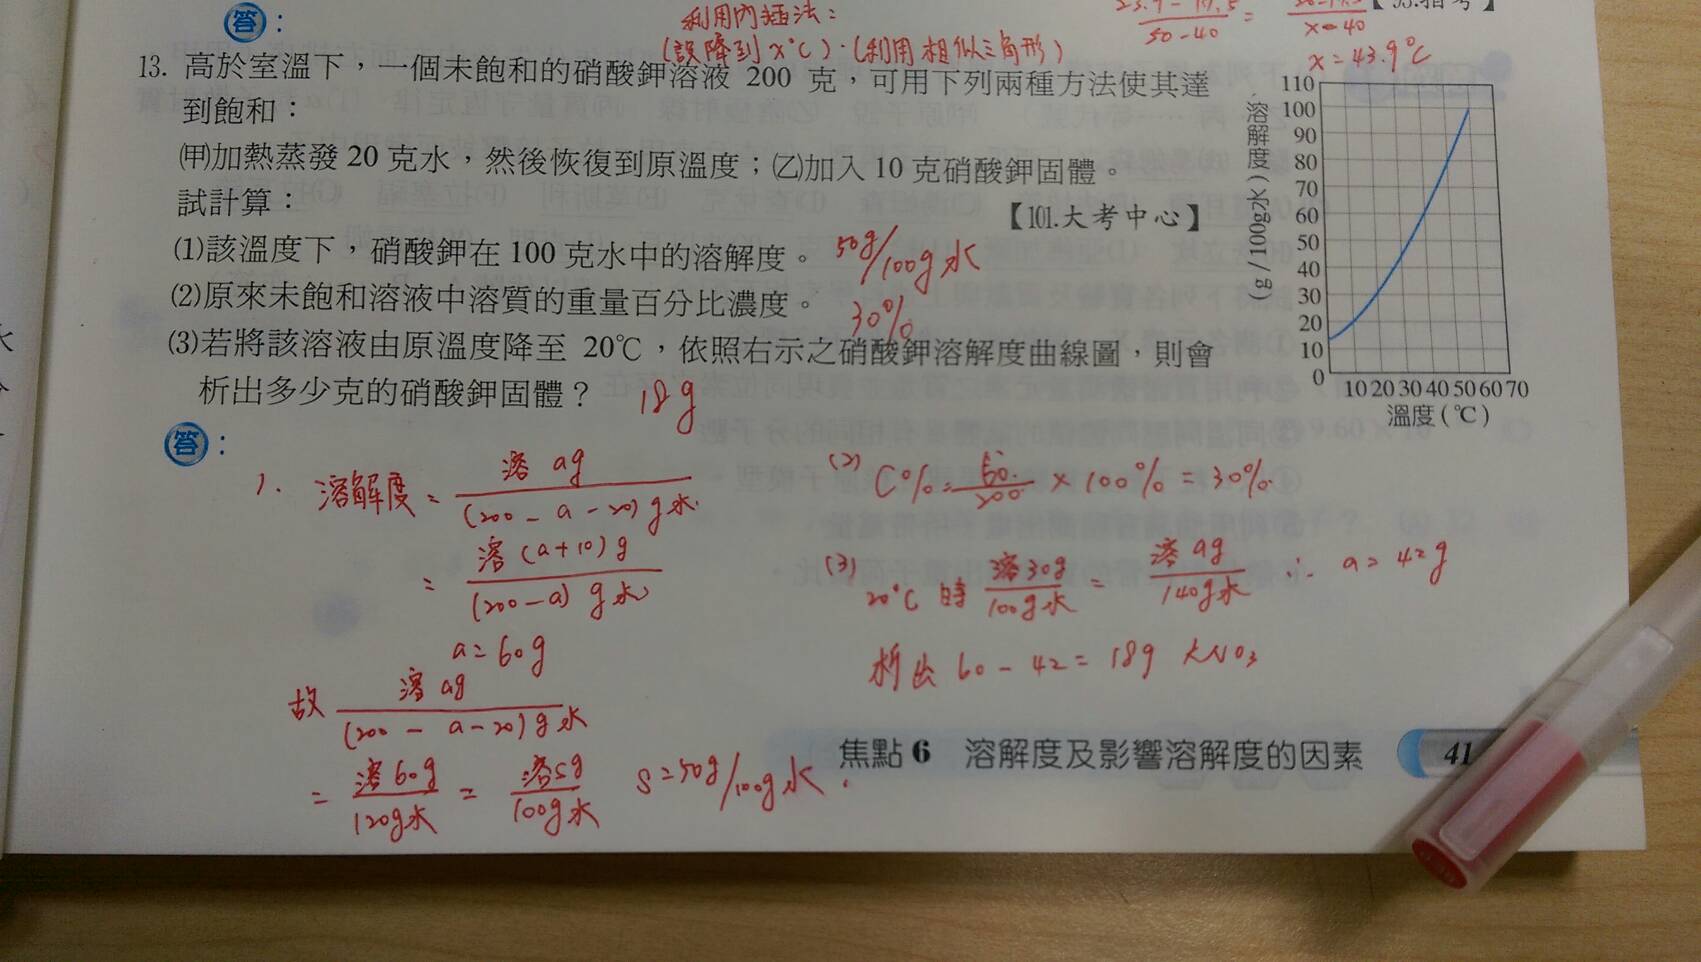 答：
利用內插法：
(設降到x℃)·(利用相似三角形)
50-40
=
x-40
x=43.9℃
13. 高於室溫下，一個未飽和的硝酸鉀溶液 200 克，可用下列兩種方法使其達
到飽和：
㈙加熱蒸發 20 克水，然後恢復到原溫度；㈚加入 10 克硝酸鉀固體。
試計算：
【101.大考中心】
⑴該溫度下，硝酸鉀在 100 克水中的溶解度。 50g/100g水
⑵原來未飽和溶液中溶質的重量百分比濃度。 30%
⑶若將該溶液由原溫度降至 20℃，依照右示之硝酸鉀溶解度曲線圖，則會
析出多少克的硝酸鉀固體？ 18g
溶解度(g/100g水)
110
100
90
80
70
60
50
40
30
20
10
0
10 20 30 40 50 60 70
溫度(℃)
答：
1. 溶解度= 溶 ag
(200-a-20)g水
= 溶(a+10)g
(200-a) g水
a=60g
故 溶 ag
(200-a-20)g水
= 溶60g
120g水
= 溶sg
100g水
s=50g/100g水
(2) C%= 60
200
×100%=30%
(3) 20℃時 溶30g
100g水
= 溶 ag
140g水
∴ a=42g
析出 60-42=18g KNO3
焦點 6 溶解度及影響溶解度的因素
41